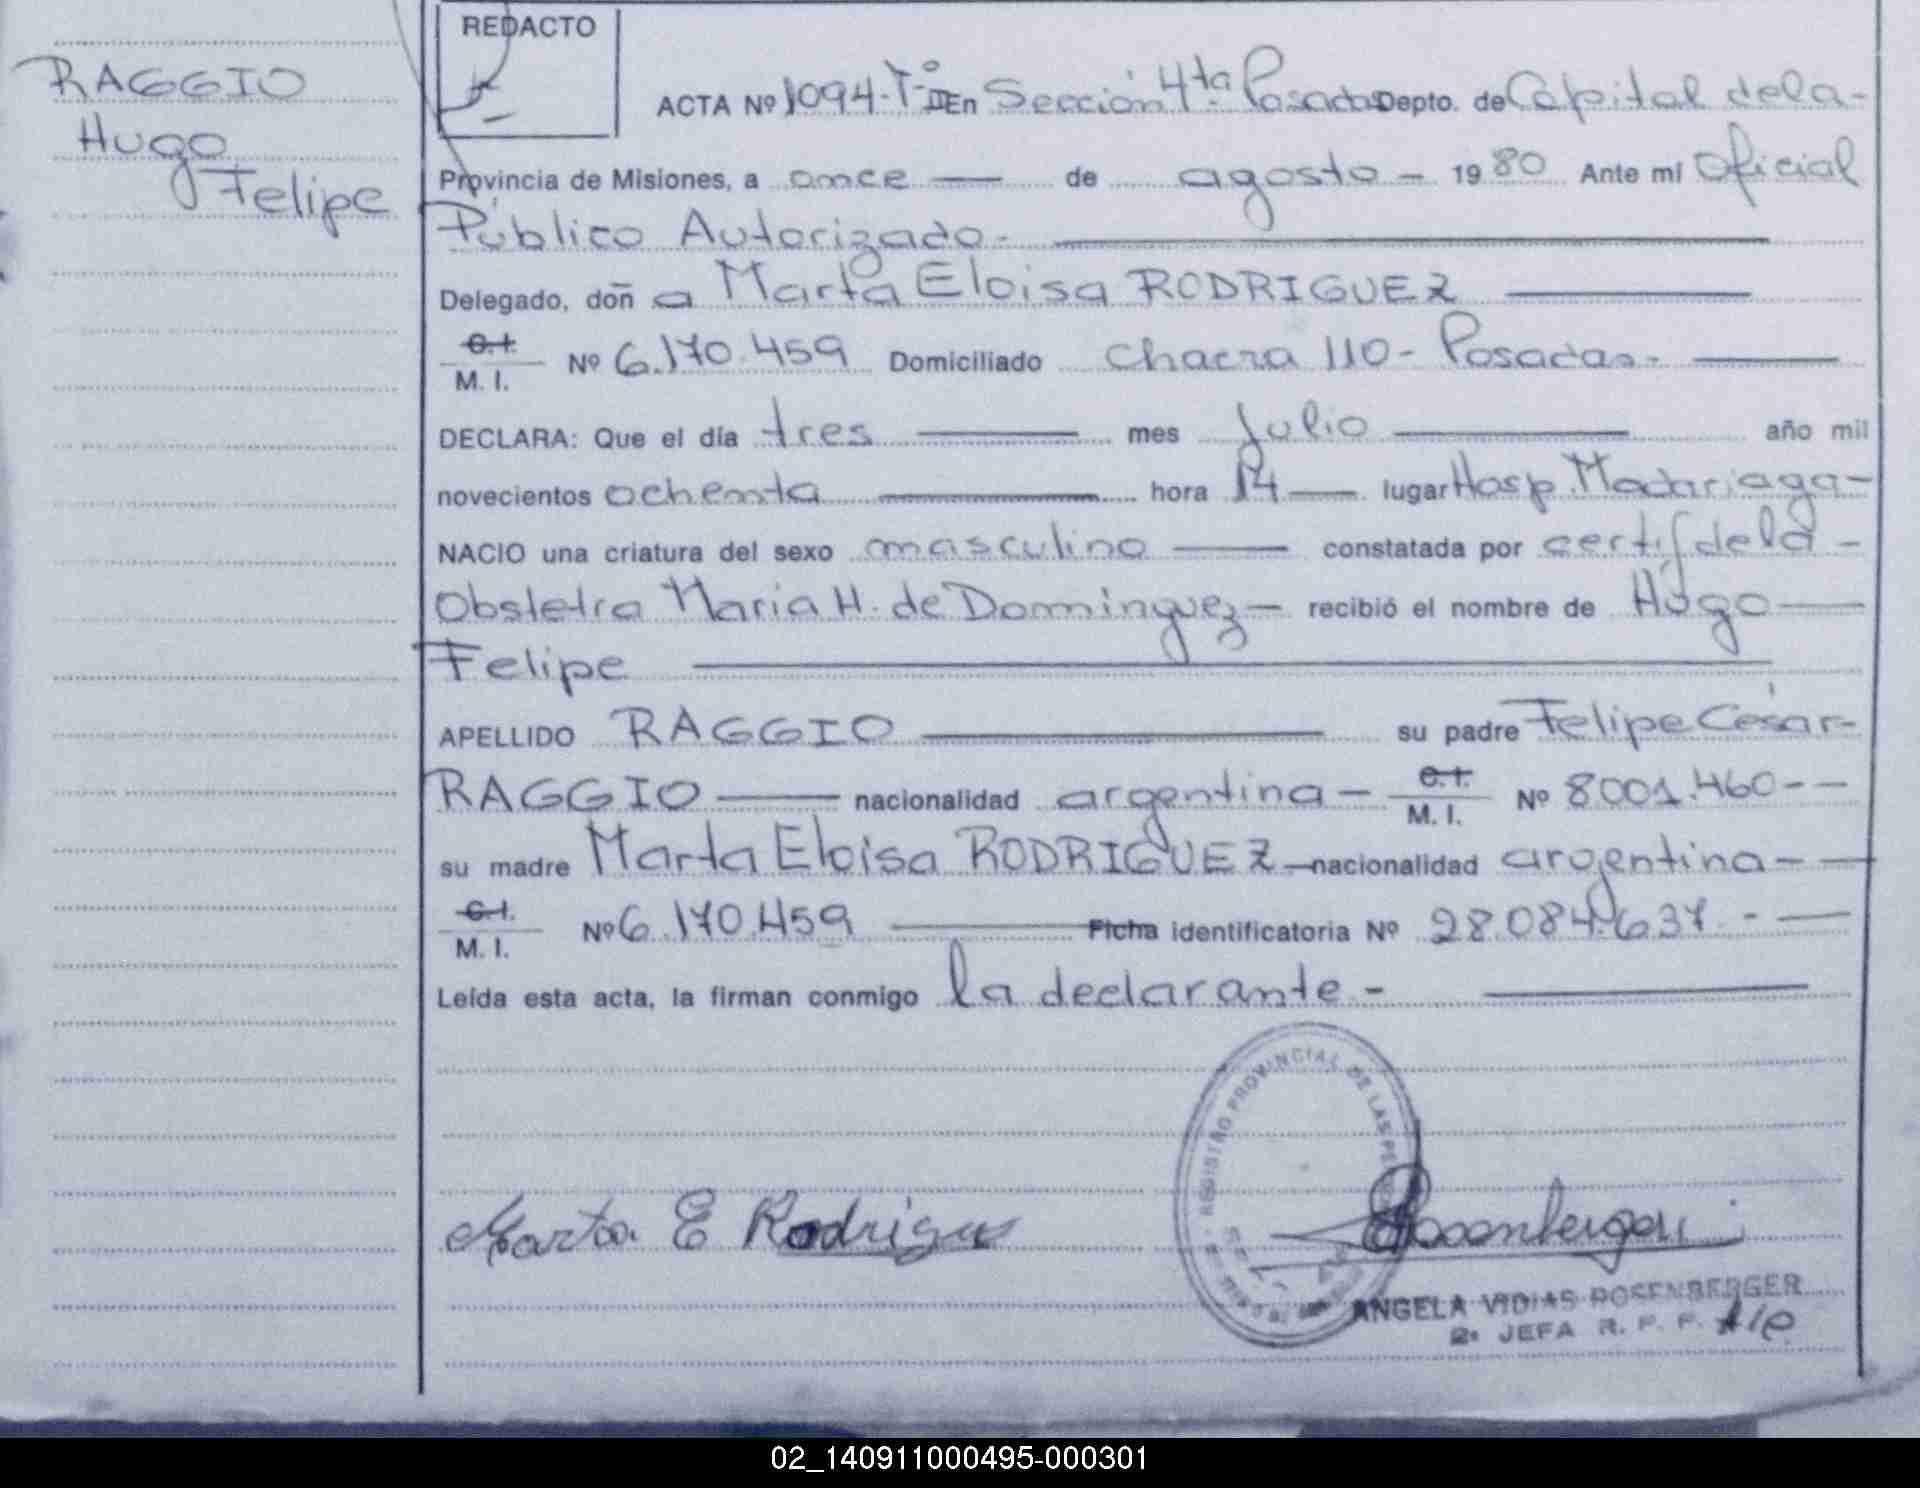 RAGGIO
Hugo
Felipe
REDACTO
ACTA Nº 1094-Tº II En Sección 4ta Posadas Depto. de Capital de la-
Provincia de Misiones, a once de agosto - 1980 Ante mi Oficial
Público Autorizado.-
Delegado, doña Marta Eloisa RODRIGUEZ
C.I.
M. I. Nº 6.170.459 Domiciliado Chacra 110- Posadas.-
DECLARA: Que el día tres mes Julio año mil
novecientos ochenta hora 14 lugar Hosp. Madariaga-
NACIO una criatura del sexo masculino constatada por certif de la -
Obstetra Maria H. de Dominguez- recibió el nombre de Hugo
Felipe
APELLIDO RAGGIO su padre Felipe César-
RAGGIO nacionalidad argentina - C.I.
M. I. Nº 8001.460--
su madre Marta Eloisa RODRIGUEZ- nacionalidad argentina-
C.I.
M. I. Nº 6.170.459 Ficha identificatoria Nº 28.084.637.-
Leída esta acta, la firman conmigo la declarante-
REGISTRO PROVINCIAL DE LAS
Marta E Rodriguez
Rosenberger
ANGELA VIDIAS ROSENBERGER
2ª JEFA R. P. P. A/C
02_140911000495-000301